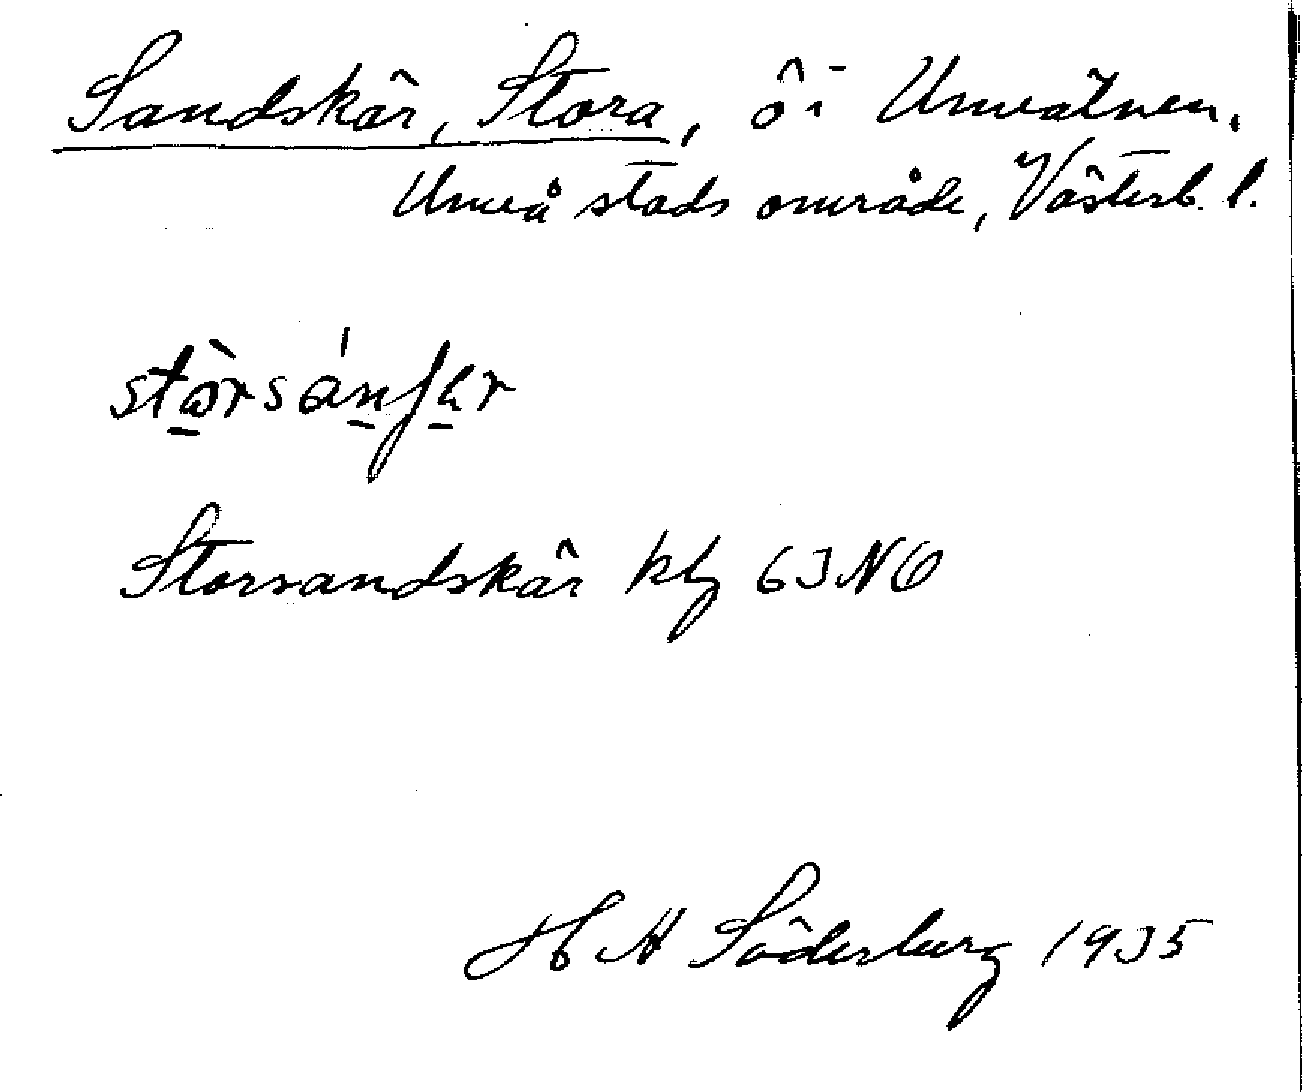 Sandskär, Stora, ö i Umeälven.
Umeå stads område, Västerb. l.
Storsandskär kbl 63 NO
H A Söderberg 1935